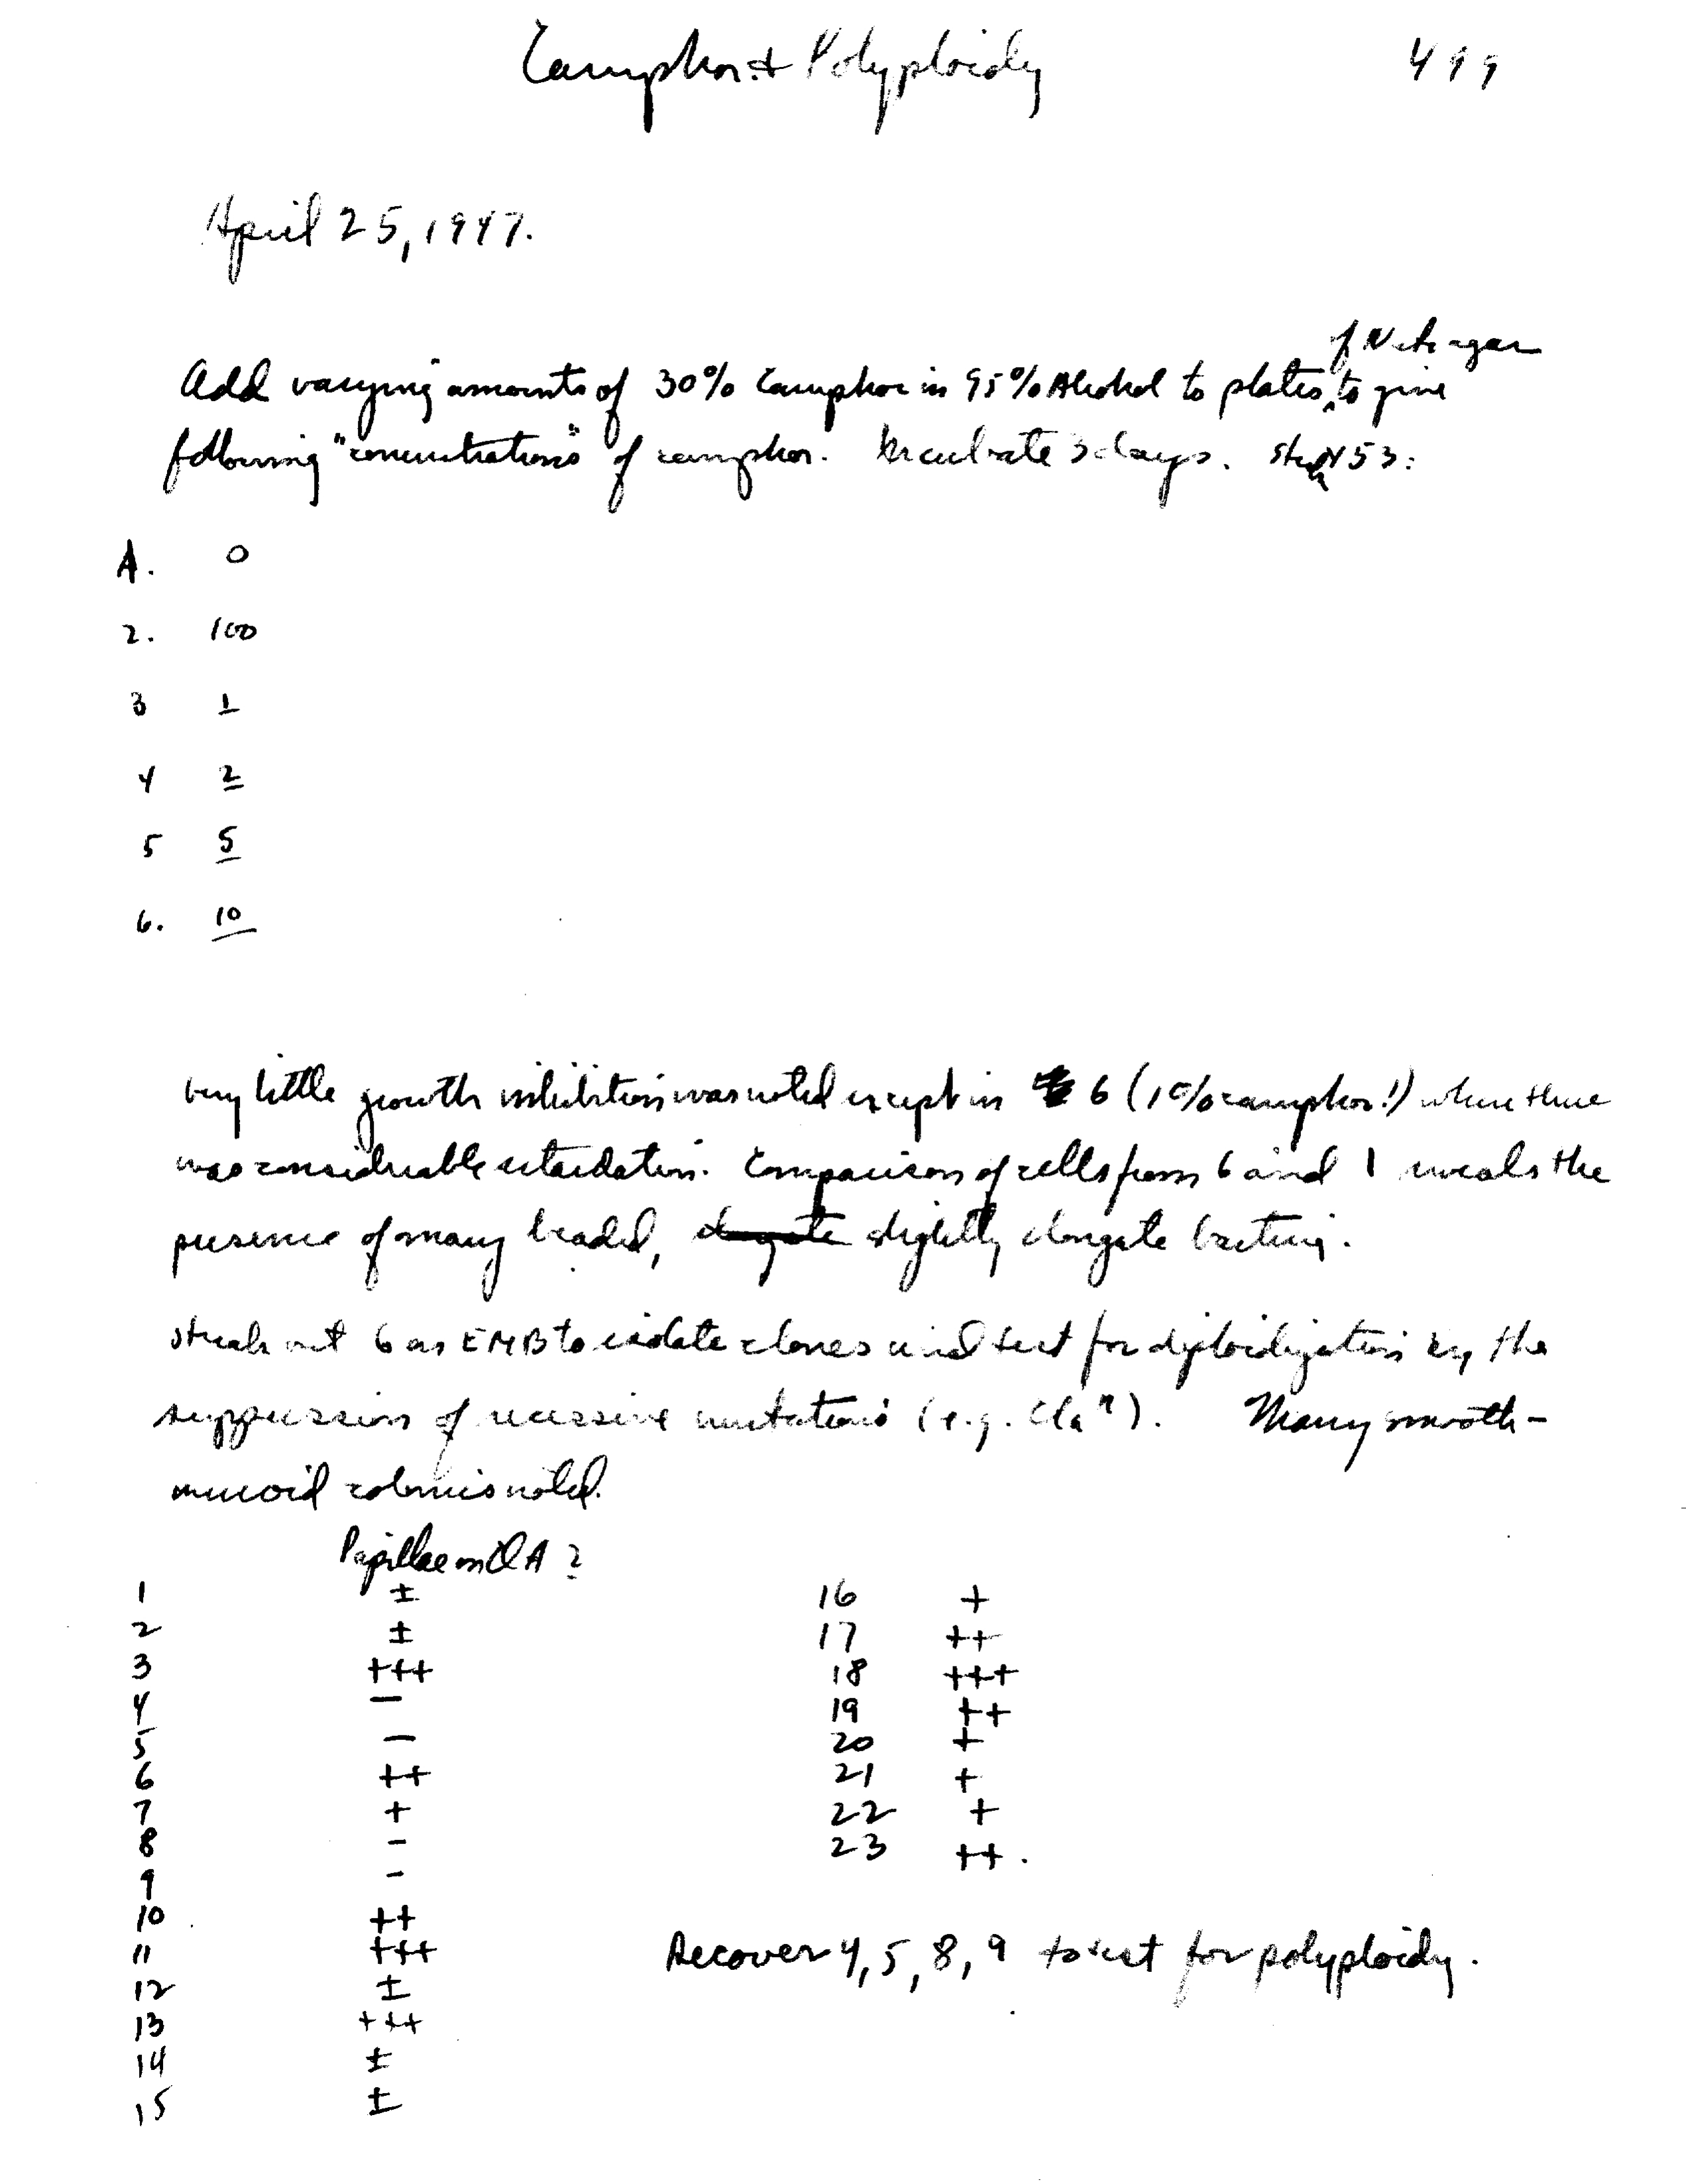 Camphor + Polyploidy 499
April 25, 1947.
of Nutr agar
Add varying amounts of 30% Camphor in 95% Alcohol to plates ‸ to give
following "concentrations" of camphor. Incubate 3 days.
A. 0
2. 100
3 1
4 2
5 5
6. 10
Very little growth inhibition was noted except in 6 (1% camphor!) where there
was considerable retardation. Comparison of cells from 6 and 1 reveals the
presence of many beaded, elongate slightly elongate bacteria.
Streak out 6 on EMB to isolate clones and test for diploidization by the
suppression of recessive mutations (e.g.        ). Many smooth-
mucoid colonies noted.
Papillae on        ?
1 ± 16 +
2 ± 17 ++
3 +++ 18 +++
4 − 19 ++
5 − 20 +
6 ++ 21 +
7 + 22 +
8 − 23 ++.
9 −
10 ++
11 +++ Recover 4, 5, 8, 9 to test for polyploidy.
12 ±
13 +++
14 ±
15 ±